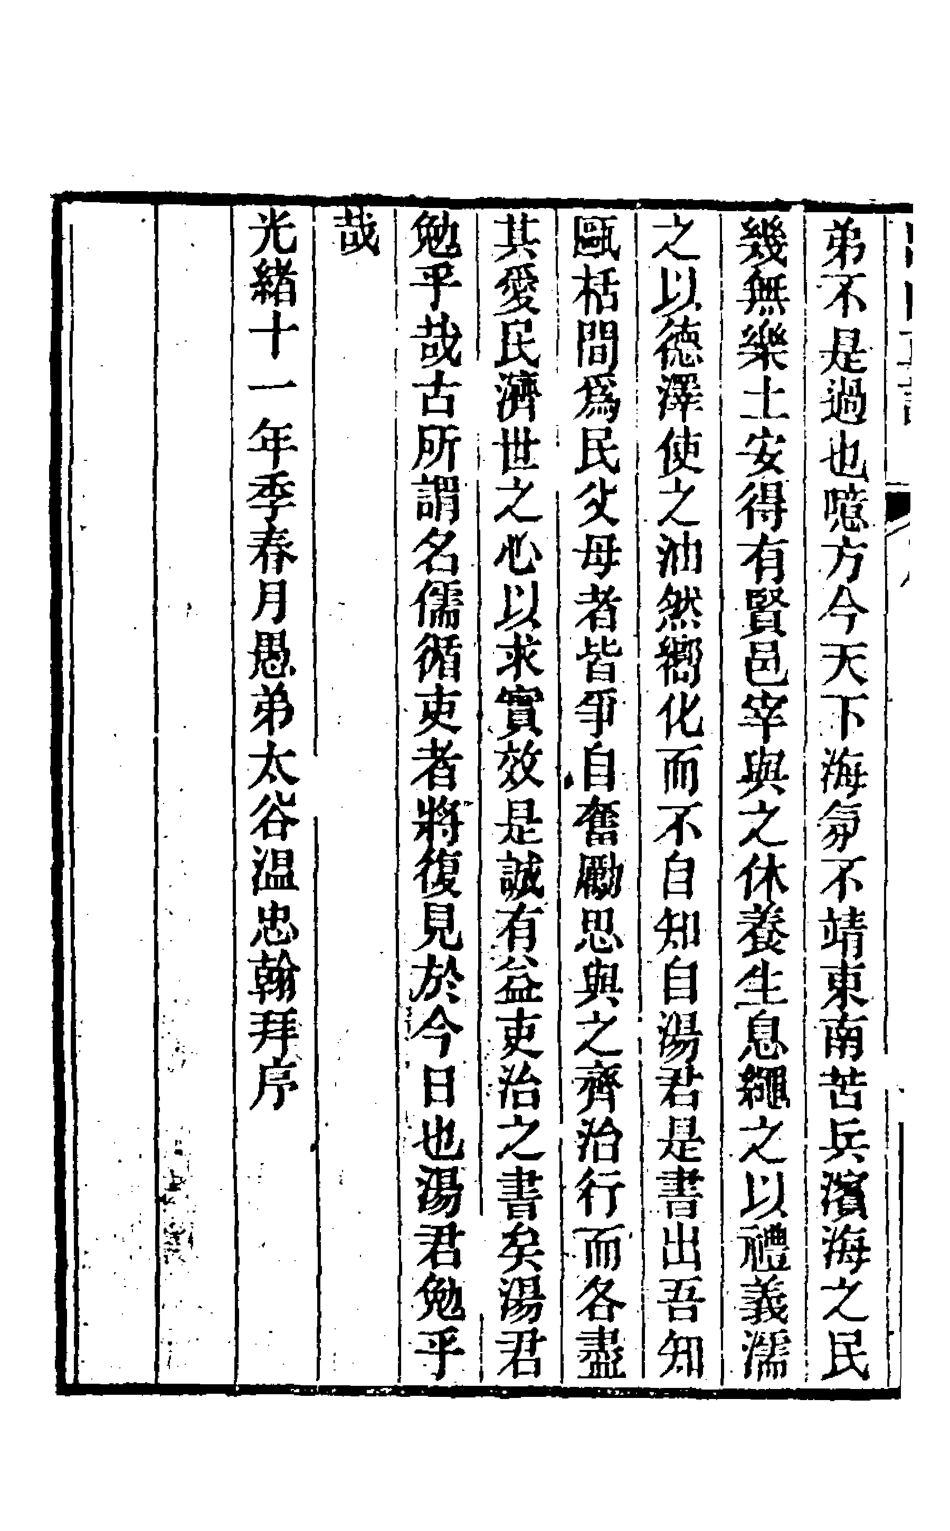 弟不是過也噫方今天下海氛不靖東南苦兵濱海之民
幾無樂土安得有賢邑宰與之休養生息繩之以禮義濡
之以德澤使之油然嚮化而不自知自湯君是書出吾知
甌栝間爲民父母者皆爭自奮勵思與之齊治行而各盡
其愛民濟世之心以求實效是誠有益吏治之書矣湯君
勉乎哉古所謂名儒循吏者將復見於今日也湯君勉乎
哉
光緒十一年季春月愚弟太谷温忠翰拜序